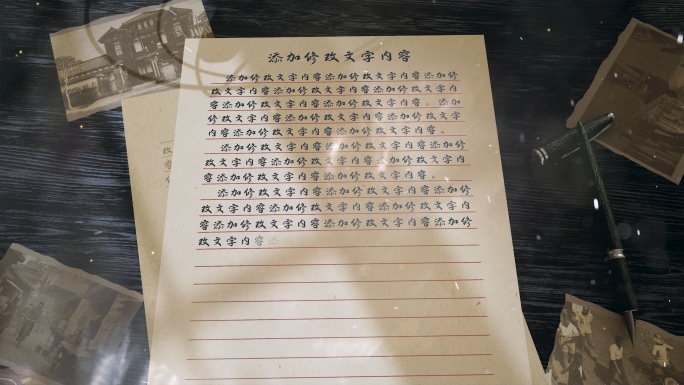 添加修改文字内容
添加修改文字内容添加修改文字内容添加修
改文字内容添加修改文字内容添加修改文字内
容添加修改文字内容添加修改文字内容。添加
修改文字内容添加修改文字内容添加修改文字
内容添加修改文字内容添加修改文字内容。
添加修改文字内容添加修改文字内容添加修
改文字内容添加修改文字内容添加修改文字内
容添加修改文字内容添加修改文字内容。
添加修改文字内容添加修改文字内容添加修
改文字内容添加修改文字内容添加修改文字内
容添加修改文字内容添加修改文字内容添加修
改文字内容添